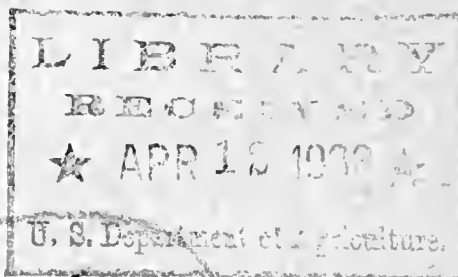 LIBRARY
RECEIVED
★ APR 1
U. S. Department of Agriculture.